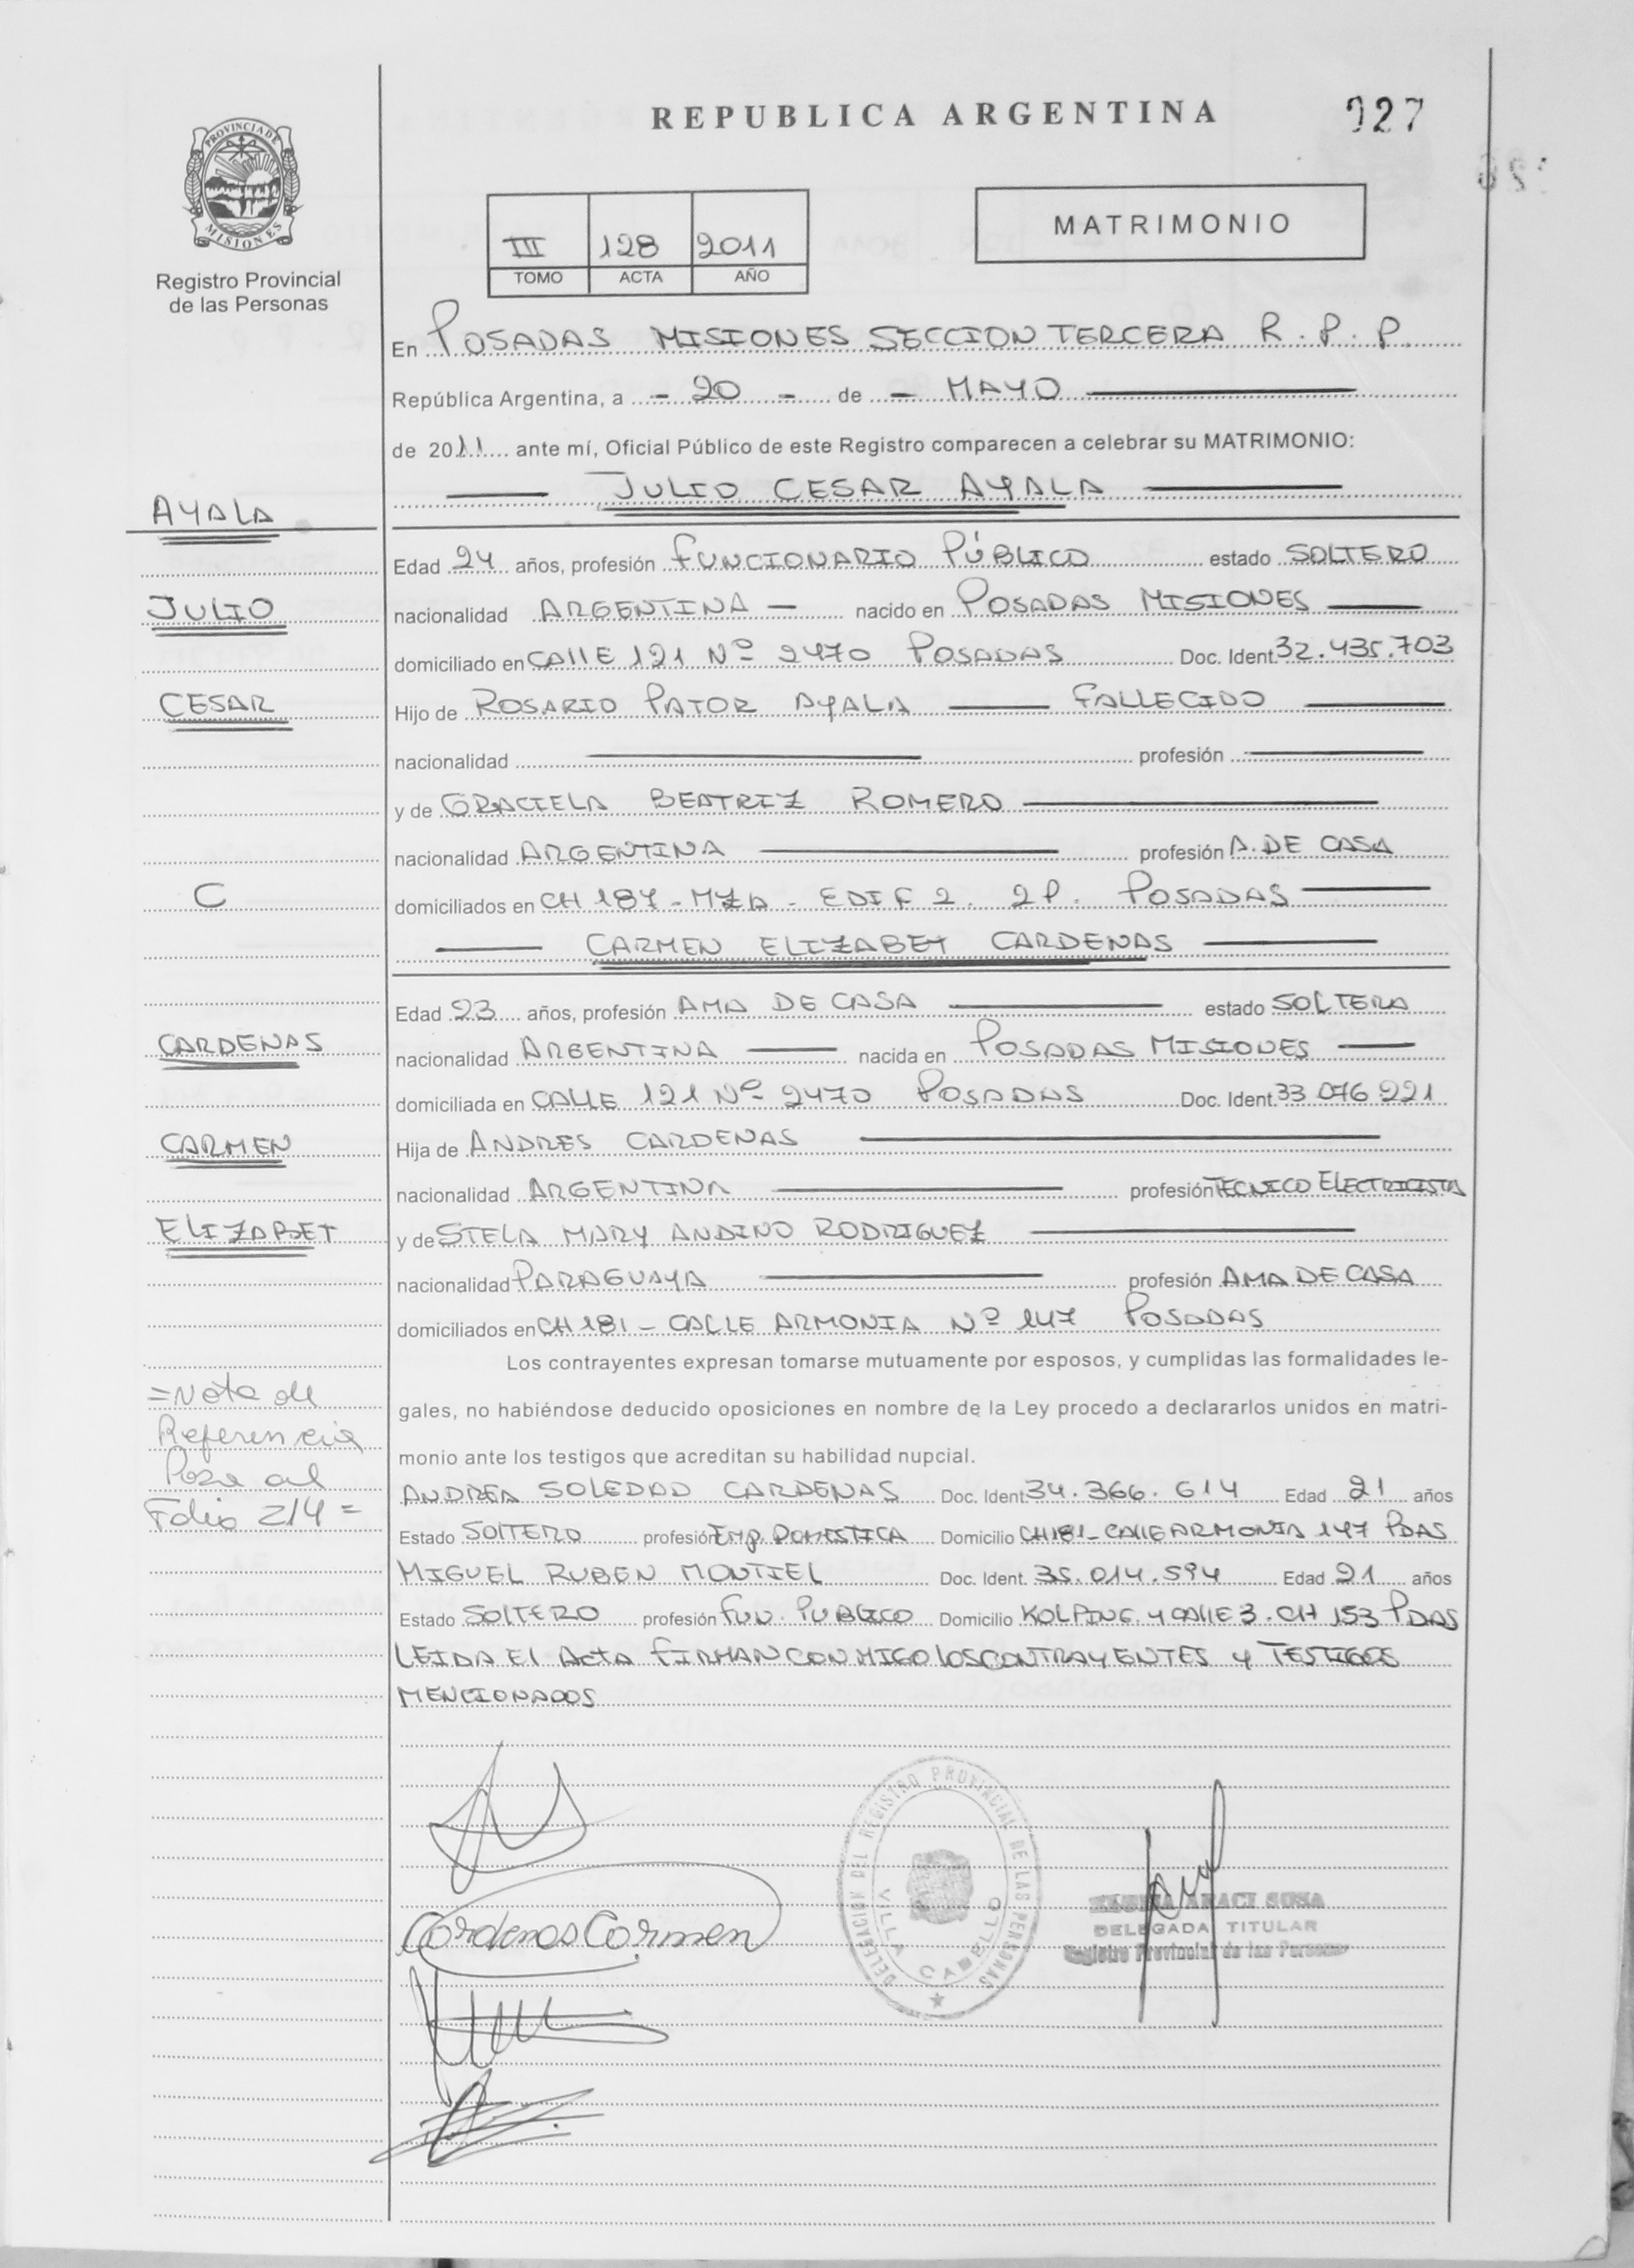 REPUBLICA ARGENTINA
927
PROVINCIA DE MISIONES
Registro Provincial
de las Personas
III 128 2011
TOMO ACTA AÑO
MATRIMONIO
En POSADAS MISIONES SECCION TERCERA R.P.P.
República Argentina, a - 20 - de - MAYO
de 2011 ante mí, Oficial Público de este Registro comparecen a celebrar su MATRIMONIO:
JULIO CESAR AYALA
AYALA
Edad 24 años, profesión FUNCIONARIO PÚBLICO estado SOLTERO
JULIO
nacionalidad ARGENTINA - nacido en POSADAS MISIONES
domiciliado en CALLE 121 Nº 2470 POSADAS Doc. Ident. 32.435.703
CESAR
Hijo de ROSARIO PATOR AYALA FALLECIDO
nacionalidad profesión
y de GRACIELA BEATRIZ ROMERO
nacionalidad ARGENTINA profesión A. DE CASA
C
domiciliados en CH 187 - MZA - EDIF 2. 2P. POSADAS
CARMEN ELIZABET CARDENAS
Edad 23 años, profesión AMA DE CASA estado SOLTERA
CARDENAS
nacionalidad ARGENTINA nacida en POSADAS MISIONES
domiciliada en CALLE 121 Nº 2470 POSADAS Doc. Ident. 33 076 221
CARMEN
Hija de ANDRES CARDENAS
nacionalidad ARGENTINA profesión TECNICO ELECTRICISTA
ELIZABET
y de STELA MARY ANDINO RODRIGUEZ
nacionalidad PARAGUAYA profesión AMA DE CASA
domiciliados en CH 181 - CALLE ARMONIA Nº 147 POSADAS
Los contrayentes expresan tomarse mutuamente por esposos, y cumplidas las formalidades le-
gales, no habiéndose deducido oposiciones en nombre de la Ley procedo a declararlos unidos en matri-
monio ante los testigos que acreditan su habilidad nupcial.
=Nota de
Referencia
Pasa al
Folio 214=
ANDREA SOLEDAD CARDENAS Doc. Ident. 34.366.614 Edad 21 años
Estado SOLTERO profesión Emp. DOMESTICA Domicilio CH 181 - CALLE ARMONIA 147 PDAS
MIGUEL RUBEN MONTIEL Doc. Ident. 35.014.594 Edad 21 años
Estado SOLTERO profesión FUN. PUBLICO Domicilio KOLPING y CALLE 3. CH 153 PDAS
LEIDA El ActA FIRMAN CONMIGO LOS CONTRAYENTES y TESTIGOS
MENCIONADOS
DELEGACION DEL REGISTRO PROVINCIAL DE LAS PERSONAS
VILLA CABELLO
Cardenas Carmen
ARACI SOSA
DELEGADA TITULAR
Registro Provincial de las Personas